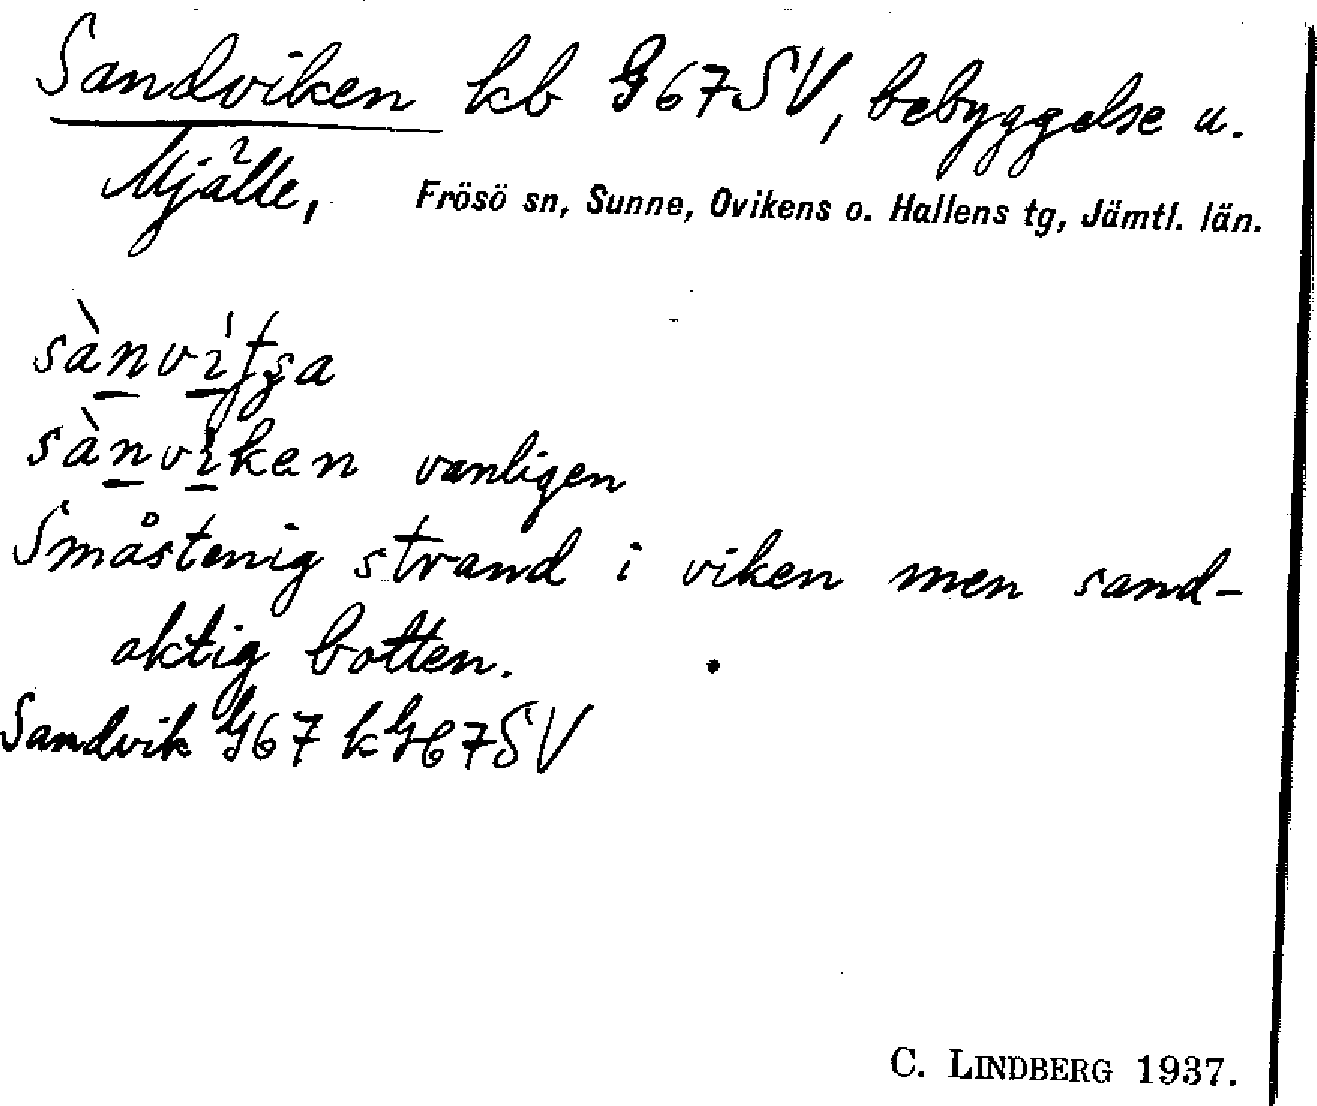 Sandviken kb G67SV, bebyggelse u.
Mjälle², Frösö sn, Sunne, Ovikens o. Hallens tg, Jämtl. län.
sànvìtʂa
sànviken vanligen
Småstenig strand i viken men sand-
aktig botten.
Sandvik G67 k G67SV
C. LINDBERG 1937.